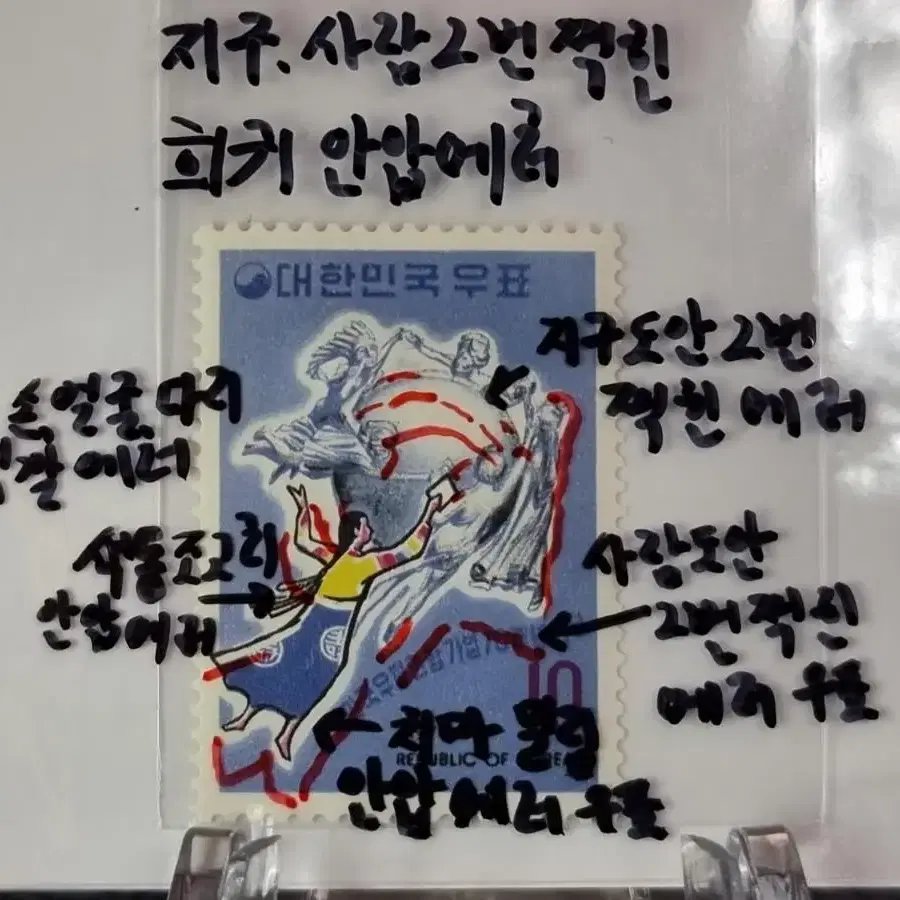 지구.사람2번찍힌
희귀 안압에러
대한민국우표
지구도안2번
찍힌에러
손얼굴다리
에러
색동조고리
안압에러
사람도안
2번찍힌
에러 우표
10
치마 밀림
REPUBLIC OF KOREA
안압에러 우표